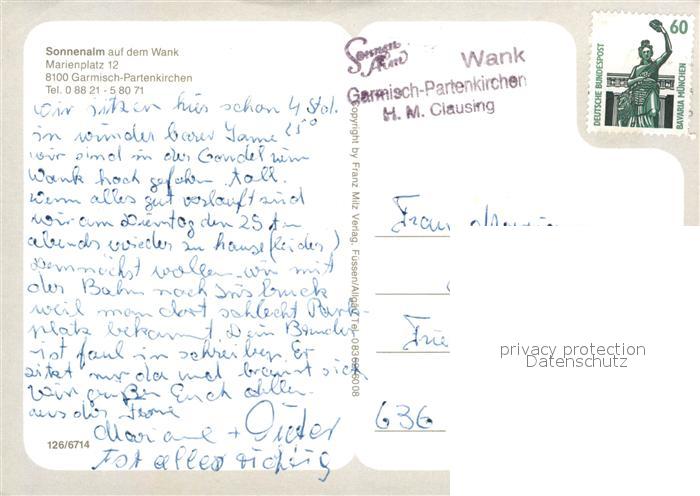 Sonnenalm auf dem Wank
Marienplatz 12
8100 Garmisch-Partenkirchen
Tel. 0 88 21 - 5 80 71
wir sitzen hier schon 4 Std.
in wunderbarer Sonne 25°
wir sind in der Gondel zum
Wank hoch gefahren toll.
wenn alles gut verlauft sind
wir am Dienstag den 25ten
abends wieder zu hause (leider)
Demnächst wollen wir mit
der Bahn nach Insbruck
weil man dort schlecht Park-
platz bekommt. Dein Bruder
ist faul in schreiben. Er
sitzt nur da und brennt sich
Wir grüßen Euch allen
aus der Ferne
Mariane + Dieter
Ist alles richtig
126/6714
Copyright by Franz Milz Verlag, Füssen/Allgäu Tel. 08362/6008
Sonnen
Alm
Wank
Garmisch-Partenkirchen
H. M. Clausing
60
DEUTSCHE BUNDESPOST
BAVARIA MÜNCHEN
Frau
636
privacy protection
Datenschutz